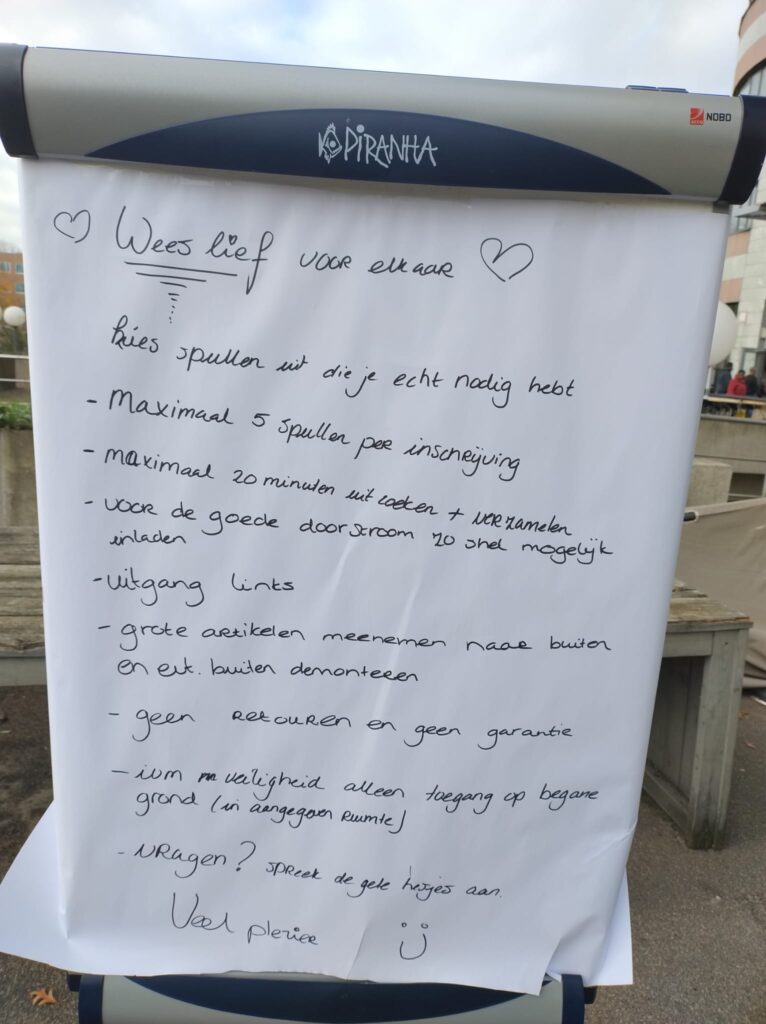 PIRANHA
NOBO
Wees lief voor elkaar
kies spullen uit die je echt nodig hebt
- Maximaal 5 spullen per inschrijving
- maximaal 20 minuten uitzoeken + verzamelen
- voor de goede doorstroom zo snel mogelijk
inladen
- uitgang links
- grote artikelen meenemen naar buiten
en evt. buiten demonteren
- geen retouren en geen garantie
- ivm veiligheid alleen toegang op begane
grond (in aangegeven ruimte)
- vragen? spreek de gele hesjes aan.
Veel plezier :)